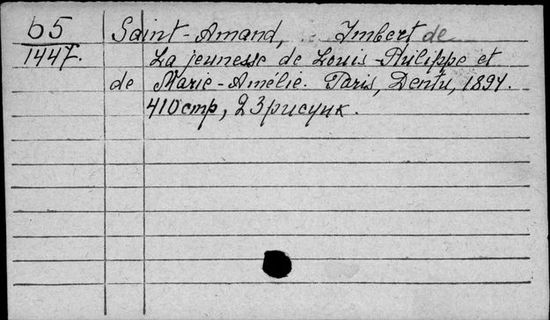 б5 Saint-Amand, Imbert de
1447. La jeunesse de Louis-Philippe et
de Marie-Amélie. Paris, Dentu, 1894.
410 стр, 23 рисунк.